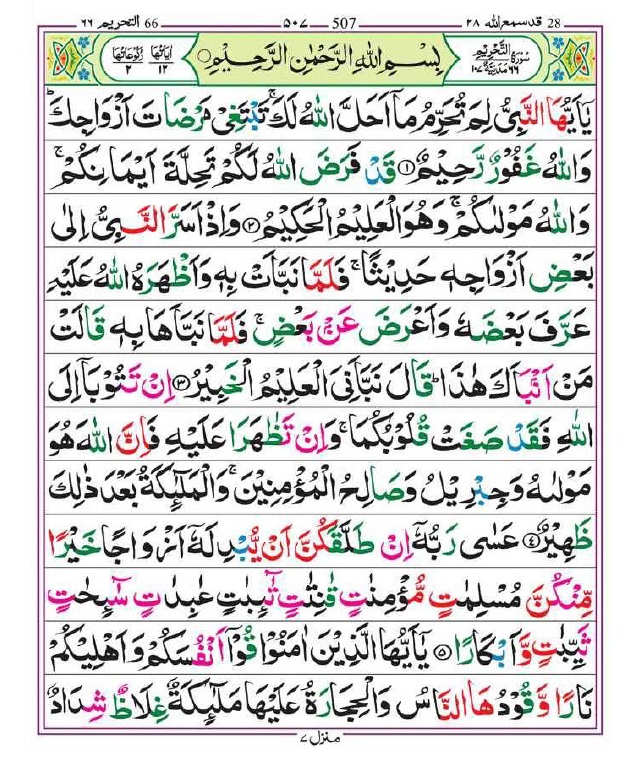 ٦٦ التحريم 66 ٥٠٧ 507 ٢٨ قد سمع الله 28
اٰيَاتُهَا ١٢ رُكُوْعَاتُهَا ٢ بِسْمِ اللهِ الرَّحْمٰنِ الرَّحِيْمِ سُوْرَةُ التَّحْرِيْمِ ٦٦ مَدَنِيَّةٌ ١٠٧
يٰۤاَيُّهَا النَّبِيُّ لِمَ تُحَرِّمُ مَاۤ اَحَلَّ اللهُ لَكَ ۚ تَبْتَغِيْ مَرْضَاتَ اَزْوَاجِكَ ؕ
وَاللهُ غَفُوْرٌ رَّحِيْمٌ ۝١ قَدْ فَرَضَ اللهُ لَكُمْ تَحِلَّةَ اَيْمَانِكُمْ ۚ
وَاللهُ مَوْلٰىكُمْ ۚ وَهُوَ الْعَلِيْمُ الْحَكِيْمُ ۝٢ وَاِذْ اَسَرَّ النَّبِيُّ اِلٰى
بَعْضِ اَزْوَاجِهٖ حَدِيْثًا ۚ فَلَمَّا نَبَّاَتْ بِهٖ وَاَظْهَرَهُ اللهُ عَلَيْهِ
عَرَّفَ بَعْضَهٗ وَاَعْرَضَ عَنْۢ بَعْضٍ ۚ فَلَمَّا نَبَّاَهَا بِهٖ قَالَتْ
مَنْ اَنْۢبَاَكَ هٰذَا ؕ قَالَ نَبَّاَنِيَ الْعَلِيْمُ الْخَبِيْرُ ۝٣ اِنْ تَتُوْبَاۤ اِلَى
اللهِ فَقَدْ صَغَتْ قُلُوْبُكُمَا ۚ وَاِنْ تَظٰهَرَا عَلَيْهِ فَاِنَّ اللهَ هُوَ
مَوْلٰىهُ وَجِبْرِيْلُ وَصَالِحُ الْمُؤْمِنِيْنَ ۚ وَالْمَلٰٓئِكَةُ بَعْدَ ذٰلِكَ
ظَهِيْرٌ ۝٤ عَسٰى رَبُّهٗۤ اِنْ طَلَّقَكُنَّ اَنْ يُّبْدِلَهٗۤ اَزْوَاجًا خَيْرًا
مِّنْكُنَّ مُسْلِمٰتٍ مُّؤْمِنٰتٍ قٰنِتٰتٍ تٰٓئِبٰتٍ عٰبِدٰتٍ سٰٓئِحٰتٍ
ثَيِّبٰتٍ وَّاَبْكَارًا ۝٥ يٰۤاَيُّهَا الَّذِيْنَ اٰمَنُوْا قُوْۤا اَنْفُسَكُمْ وَاَهْلِيْكُمْ
نَارًا وَّقُوْدُهَا النَّاسُ وَالْحِجَارَةُ عَلَيْهَا مَلٰٓئِكَةٌ غِلَاظٌ شِدَادٌ
منزل ٧